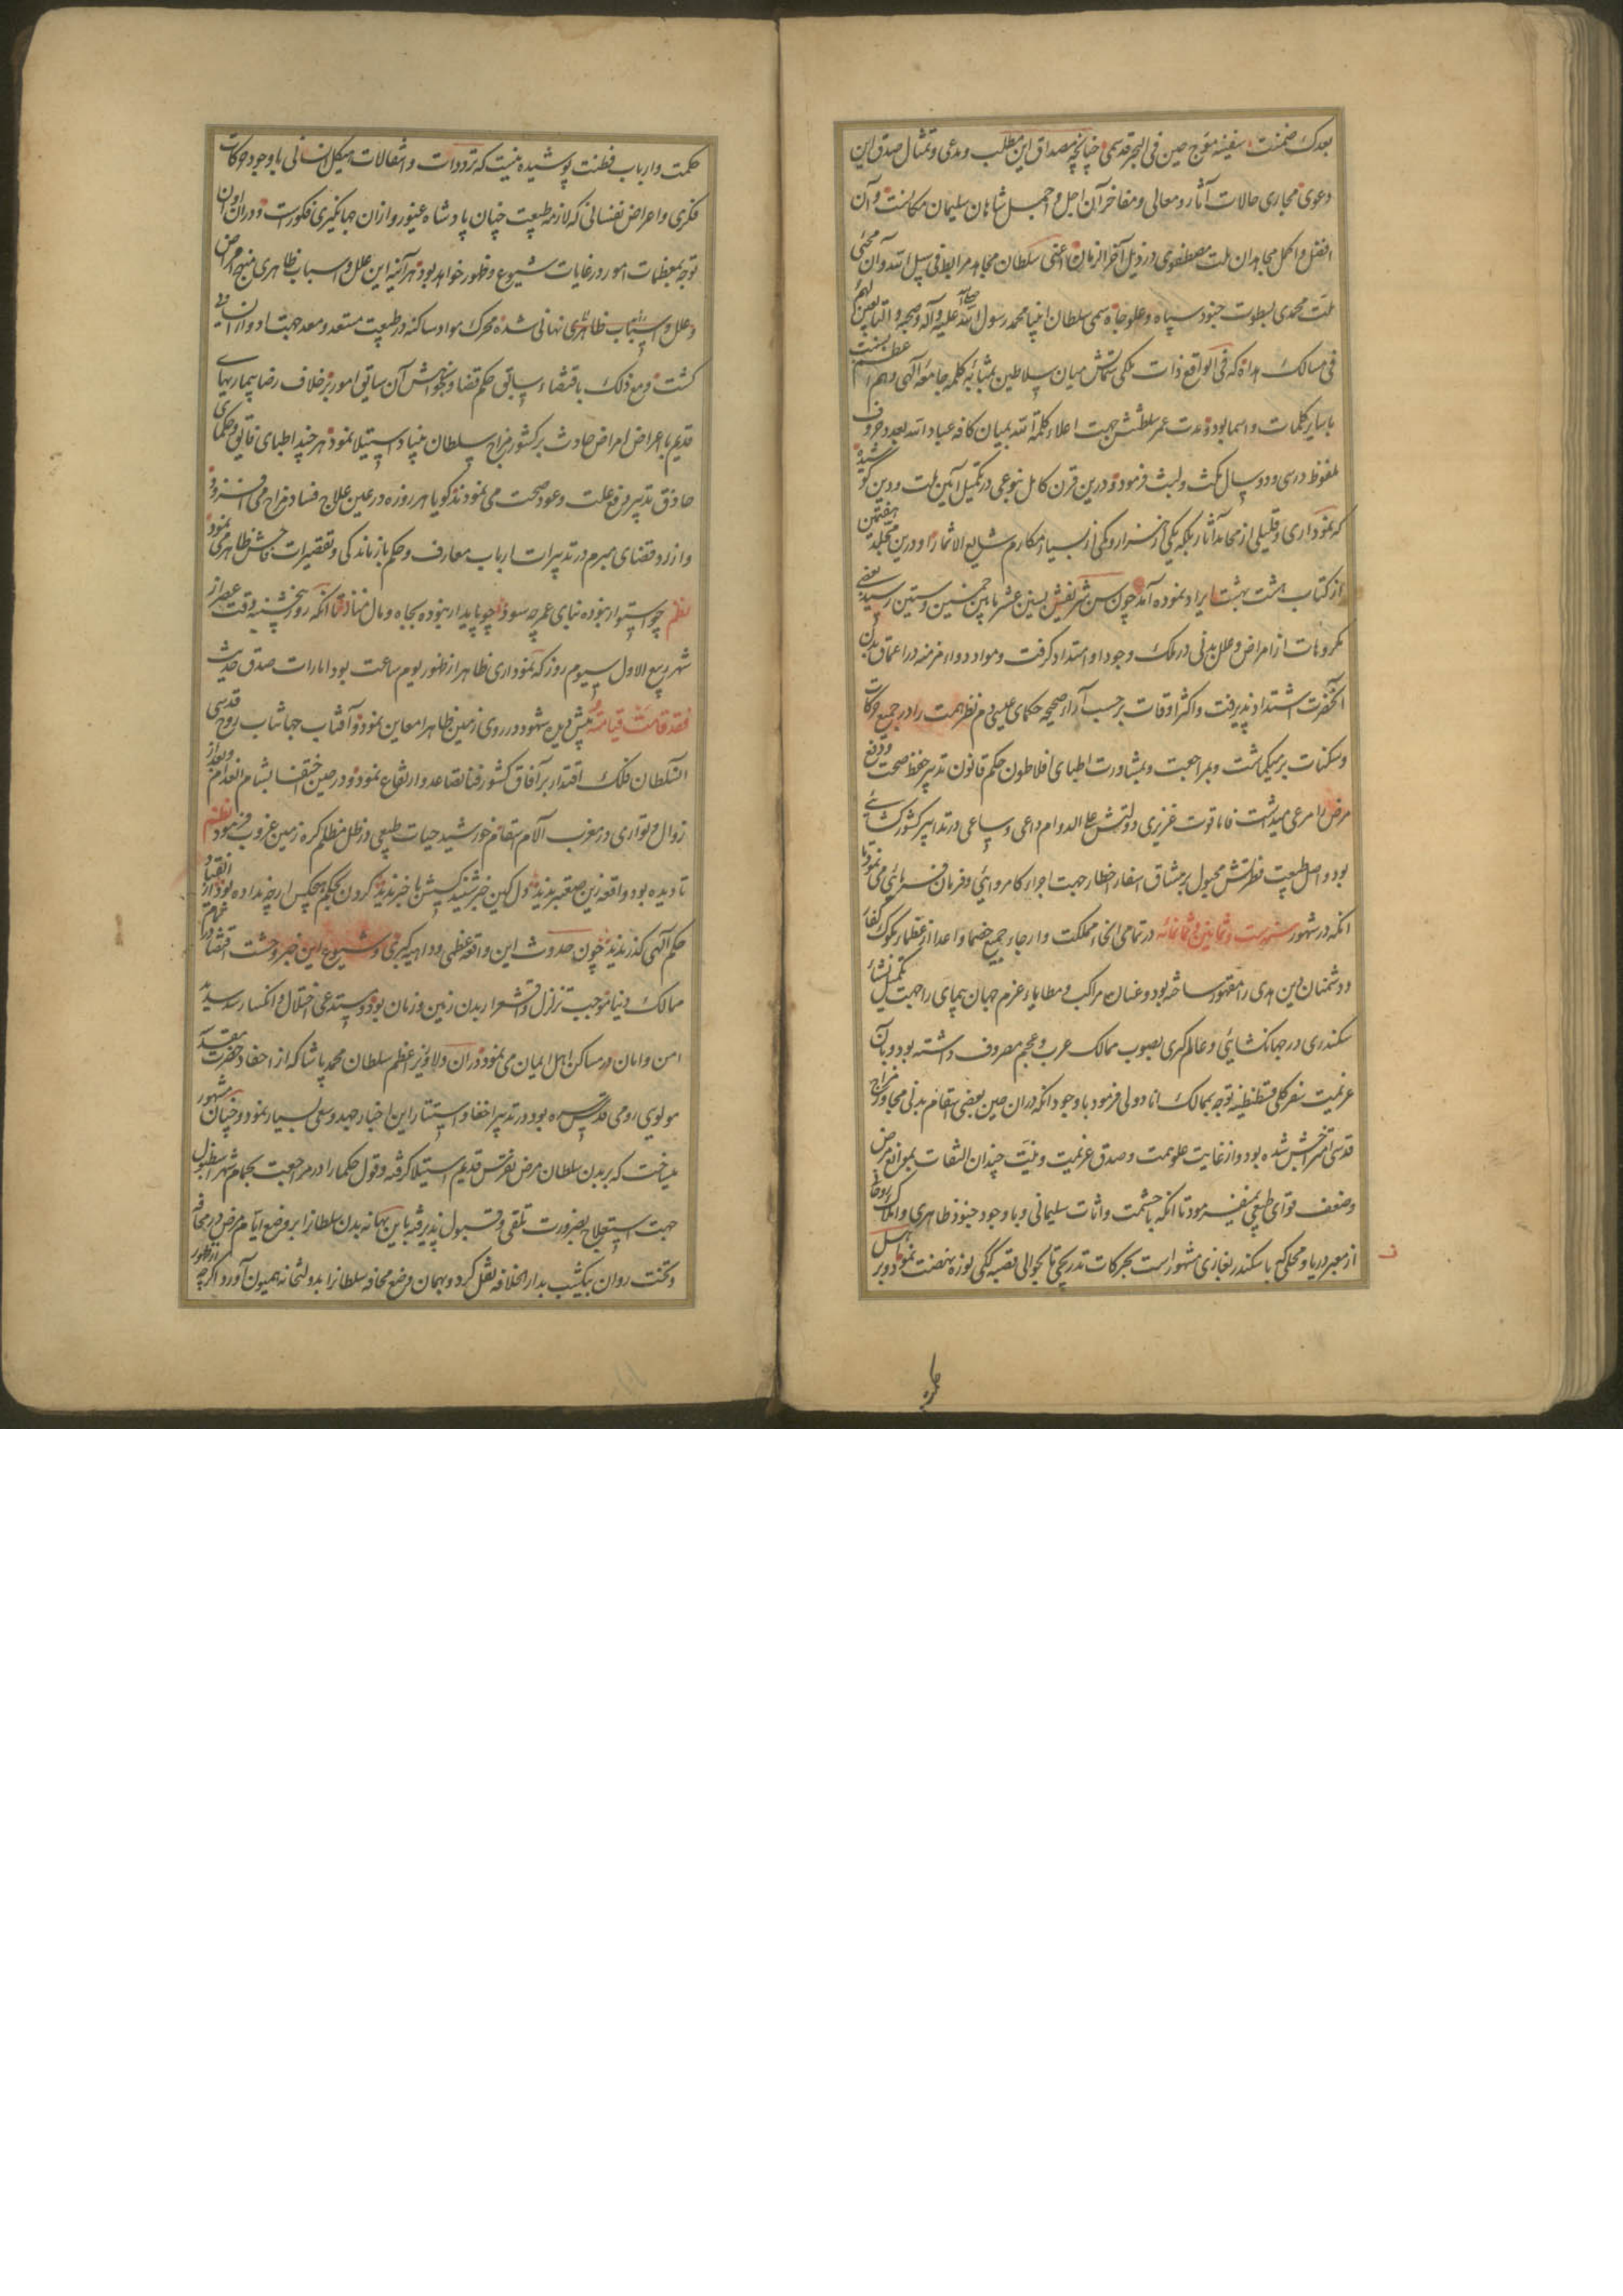 بعدک ضمنت سفینه موج حین فی البحر قدسمی چنانچه مصداق این مطلب و مدعی و تمثال صدق این
دعوی مجاری حالات آثار و معالی و مفاخر آن اجل و اجمل شاهان سلیمان مکانست و آن
افضل و اکمل مجاهدان ملت مصطفوی در ذیل آخر الزمان اعنی سلطان مجاهد مرابط فی سبیل الله و آن محیی
ملت محمدی بسطوت جنود سپاه و علو جاه سمی سلطان انبیا محمد رسول الله صلی الله علیه و آله و صحبه و التابعین لهم
فی مسالک هداه که فی الواقع ذات ملکی سماتش میان سلاطین بمثابه کلمه جامعه الهی و اسم اعظم بنسبت
با سایر کلمات و اسما بود و مدت عمر سلطنتش جهت اعلاء کلمة الله بمیان کافه عباد الله بعدد حروف
ملفوظ در سی و دو سال مکث و لبث فرمود و درین قرن کامل بنوعی در تکمیل آیین ملت و دین کوشید
که نموداری و قلیلی از محامد آثار بلکه یکی از هزار و یکی از بسیار مکارم شایع الاشتهار او درین مجلد هفتمین
از کتاب هشت بهشت ایراد نموده آمد چون سن شریفش بسنین عشر مابین خمسین و ستین رسید بعضی
مکروهات از امراض و علل بدنی در ملک وجود او امتداد گرفت و مواد دواء مزمنه در اعماق بدن
آنحضرت اشتداد پذیرفت و اکثر اوقات بر حسب آراء صحیحه حکمای عیسی دم نظر همت را در جمیع حرکات
و سکنات بر میگماشت و بمراجعت و بمشاورت اطبای افلاطون حکم قانون تدبیر حفظ صحت و دفع
مرض را مرعی میداشت فاما قوت غریزی دولتش علی الدوام داعی و ساعی در تدابیر کشورگشائی
بود و اصل طبیعت فطرتش مجبول بر مشاق اسفار اخطار جهت اجراء کامروایی و فرمان فرمائی می نمود تا
آنکه در شهور سنه ست و ثمانین و ثمانمائه در تمامی انحاء مملکت و ارجاء جمیع خصما و اعدا از عظماء ملوک کفار
و دشمنان دین هدی را مقهور ساخته بود و عنان مراکب و مطایاء عزم جهان پیمای را جهت تکمیل نشأ
سکندری در جهانگشایی و عالم گیری بصوب ممالک عرب و عجم مصروف داشته بود و بآن
عزیمت سفر کلی از قسطنطنیه توجه بممالک اناطولی فرمود با وجود آنکه در آن حین بعضی اسقام بدنی مجاور مزاج
قدسی امتزاجش شده بود و از غایت علو همت و صدق عزیمت و نیت چندان التفات بموانع مرض
و ضعف قوای طبیعی نمیفرمود تا آنکه با حشمت و اثاث سلیمانی و با وجود جنود ظاهری و املاک روحانی
از معبر دریا و محلی که باسکندر غازی مشهور است بحرکات تدریجی تا بحوالی قصبه ککی بوزه نهضت نمود و بر اهل
حکمت و ارباب فطنت پوشیده نیست که ترددات و انتقالات هیکل انسانی با وجود حرکات
فکری و اعراض نفسانی که لازمه طبیعت چنان پادشاه غیور و ازان جهانگیری فکورست و در آن اوان
توجه بمعظمات امور در غایات شیوع و ظهور خواهد بود هر آینه این علل و اسباب ظاهری منتج امراض
و علل و اسباب ظاهری نهانی شده محرک مواد ساکنه در طبیعت مستعد و معد جهت ادوار آن
کشت و مع ذلک باقتضاء سیاق حکم قضا و بخواهش آن ساقی امور بر خلاف رضا بیماریهای
قدیم با عراض امراض حادث بر کشور مزاج سلطان بنیاد استیلا نمود هر چند اطبای فایق و حکمای
حاذق تدبیر رفع علت و عود صحت می نمودند گویا هر روزه در عین علاج فساد مزاج می افزود
و از رد قضای مبرم در تدبیرات ارباب معارف و حکم باز ماندگی و تقصیرات فاحش ظاهر می نمود
نظم چو استوار نبوده بنای عمر چه سود چو پایدار نبوده بجاه و مال منناز تا آنکه روز پنجشنبه وقت عصر از
شهر ربیع الاول سیوم روز که نموداری ظاهر از ظهور یوم ساعت بود امارات صدق حدیث
فقد قامت قیامته پیش دیده شهود در روی زمین ظاهرا معاین نمود و آفتاب جهانتاب روح قدسی
السلطان فلک اقتدار بر آفاق کشور فنا تصاعد و ارتفاع نمود و در حین اختفا بشام انعدام و بعد از
زوال و تواری در مغرب آلام و اسقام خورشید حیات طبیعی در ظل مظلم کره زمین غروب فرمود نظم
تا دیده بود واقعه زین صعبتر ندید دل کین خبر شنید کسش با خبر ندید گردون بحکم هیچکس ار چه نداده بود انقیاد از
حکم الهی گذر ندید چون حدوث این واقعه عظمی و داهیه کبری و شیوع این خبر وحشت اقتضا در تمام
ممالک دنیا موجب تزلزل و اقشعرار بدن زمین و زمان بود و مستدعی اختلال و انکسار سد سدید
امن و امان در مساکن اهل ایمان می نمود در آن ولا وزیر اعظم سلطان محمد پاشا که از احفاد حضرت
مولوی رومی قدس سره بود در تدبیر اخفا و استتار این اخبار جهد و سعی بسیار نمود و چنان مشهور
میساخت که بر بدن سلطان مرض نقرس قدیم استیلا گرفته و قول حکما را در مراجعت بحمام شهر استنبول
جهت استعلاج بضرورت تلقی و قبول پذیرفته باین بهانه بدن سلطانرا بر وضع ایام مرض در محافه
و تخت روان بیکشب بدار الخلافه نقل کرد و بهمان وضع محافه سلطانرا بدولتخانه همیون آورد و اگر چه از ظهور